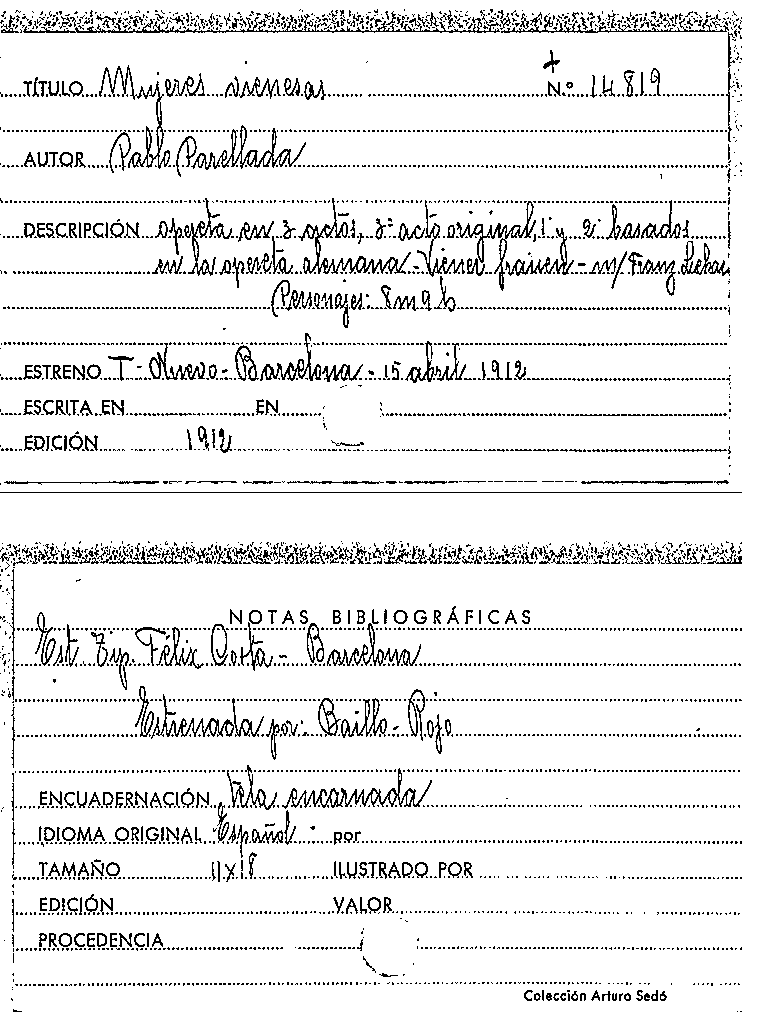 TÍTULO Mujeres vienesas + N.º 14819
AUTOR Pablo Parellada
DESCRIPCIÓN opereta en 3 actos, 3º acto original, 1º y 2º basados
en la opereta alemana - Viener frauen - m/ Franz Lehar
Personajes: 8 m 9 h
ESTRENO T- Nuevo - Barcelona - 15 abril 1912
ESCRITA EN EN
EDICIÓN 1912
NOTAS BIBLIOGRÁFICAS
Est Tip. Félix Costa - Barcelona
Estrenada por: Baillo - Rojo
ENCUADERNACIÓN Tela encarnada
IDIOMA ORIGINAL Español por
TAMAÑO 11x18 ILUSTRADO POR
EDICIÓN VALOR
PROCEDENCIA
Colección Arturo Sedó